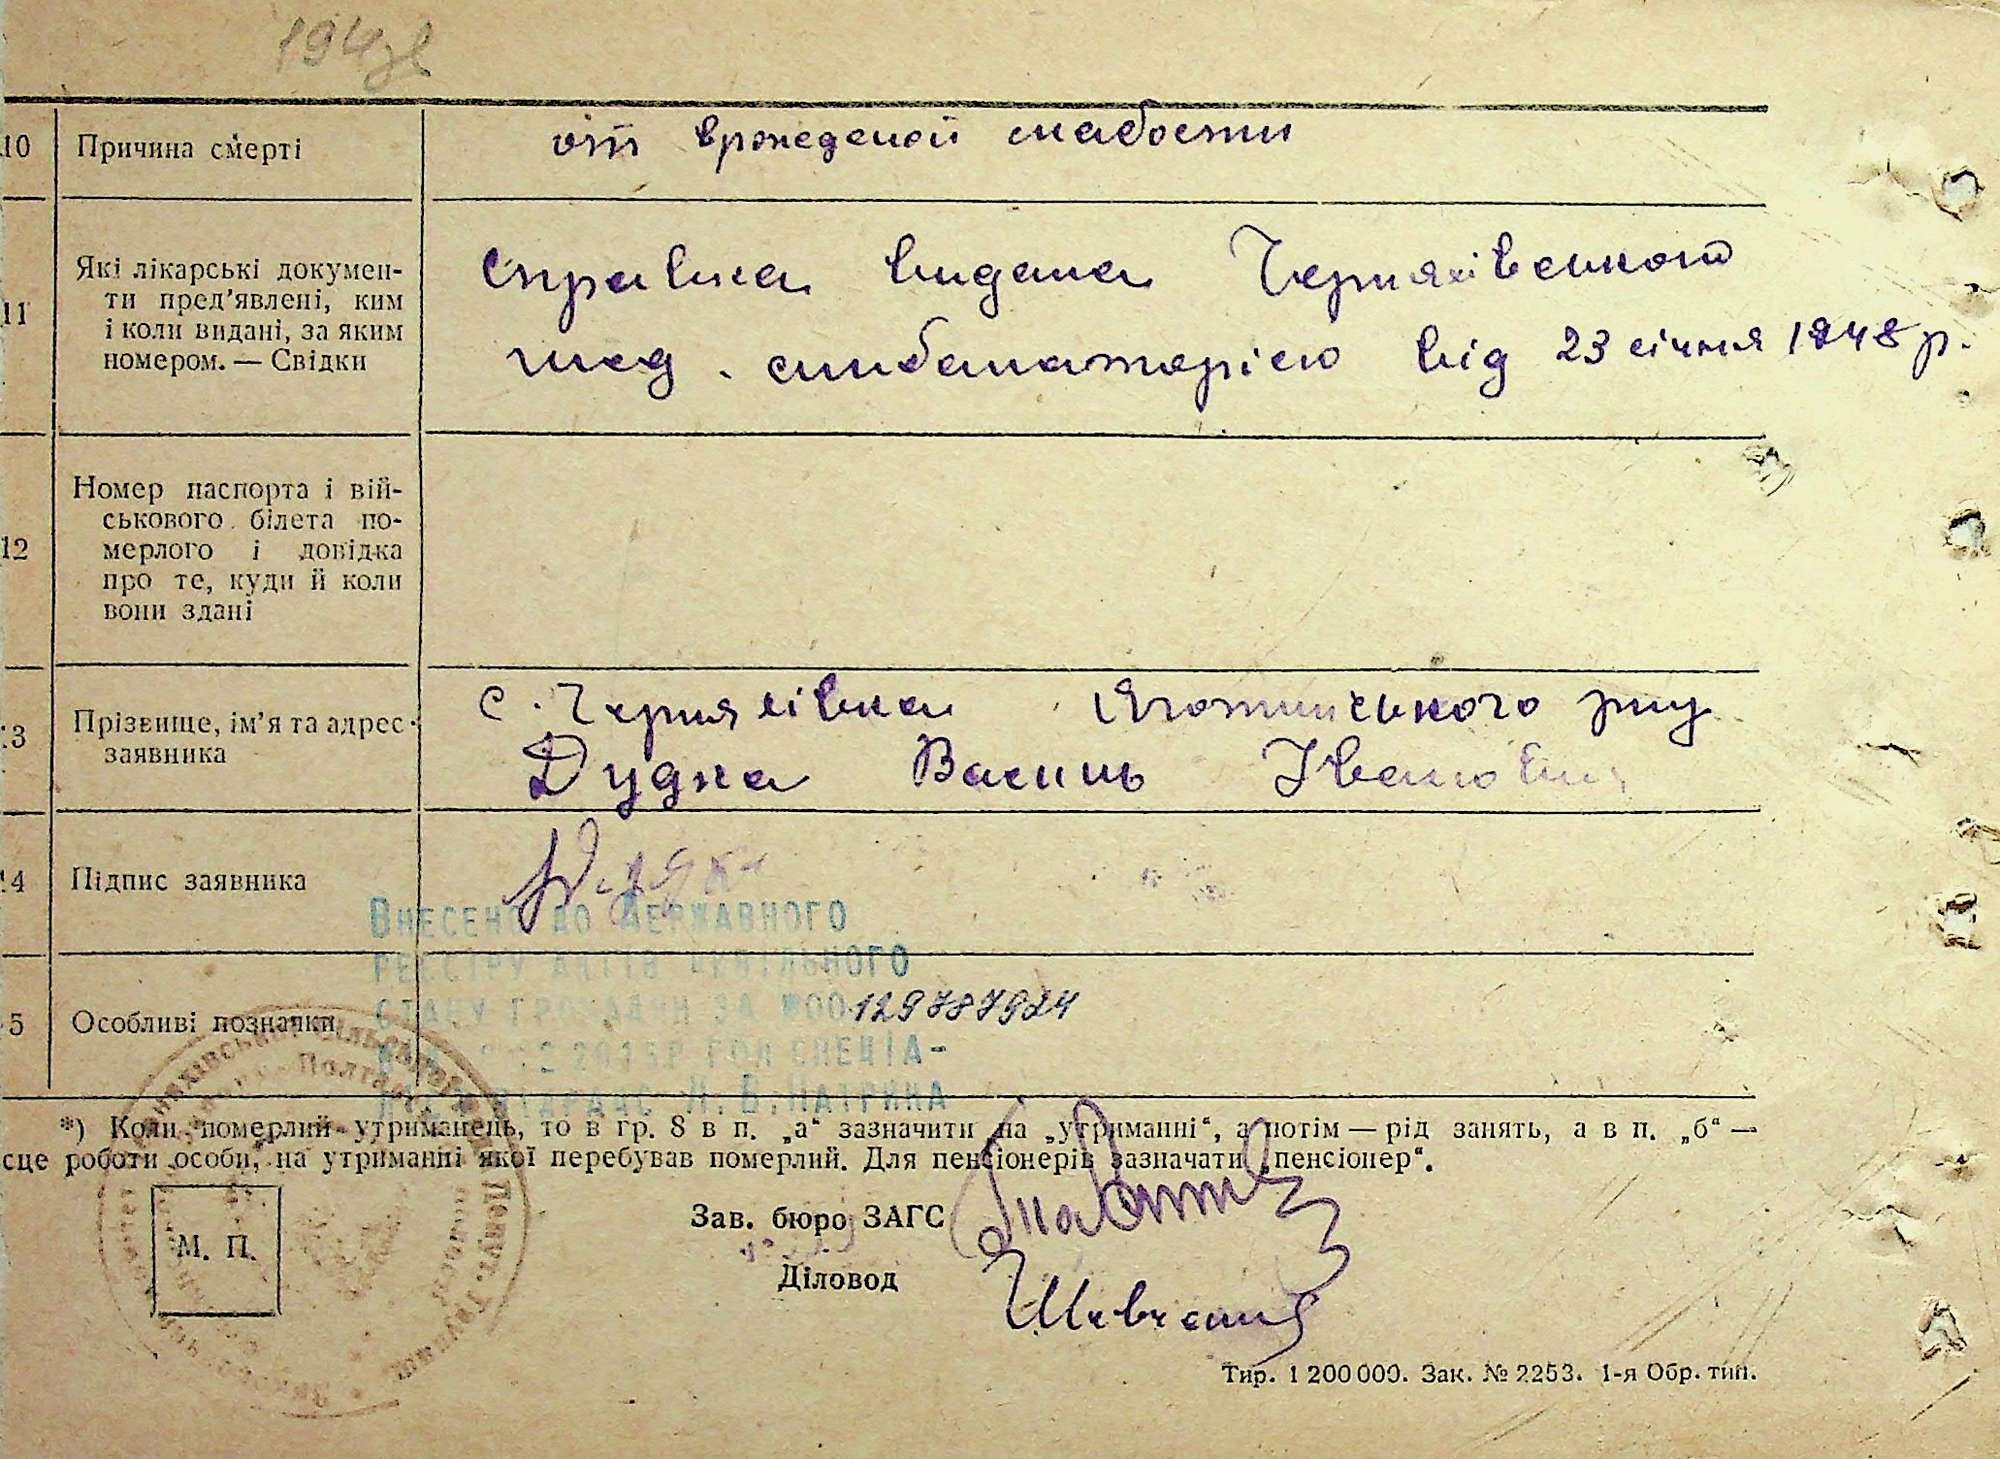 10 Причина смерті от врожденой слабости
11 Які лікарські докумен-
ти пред'явлені, ким
і коли видані, за яким
номером. — Свідки
справка видана Черняхівського
мед. амбулаторією від 23 січня 1948 р.
12 Номер паспорта і вій-
ськового білета по-
мерлого і довідка
про те, куди й коли
вони здані
3 Прізвище, ім'я та адрес
заявника
с. Черняхівка Яготинського р-ну
Дудка Василь Іванович
4 Підпис заявника
Внесено до Державного
реєстру актів цивільного
стану громадян за №00129787924
5 Особливі позначки
*) Коли померлий утриманець, то в гр. 8 в п. „а“ зазначити на „утриманні“, а потім — рід занять, а в п. „б“ —
сце роботи особи, на утриманні якої перебував померлий. Для пенсіонерів зазначати „пенсіонер“.
М. П.
Зав. бюро ЗАГС
Діловод
Тир. 1 200 000. Зак. № 2253. 1-я Обр. тип.